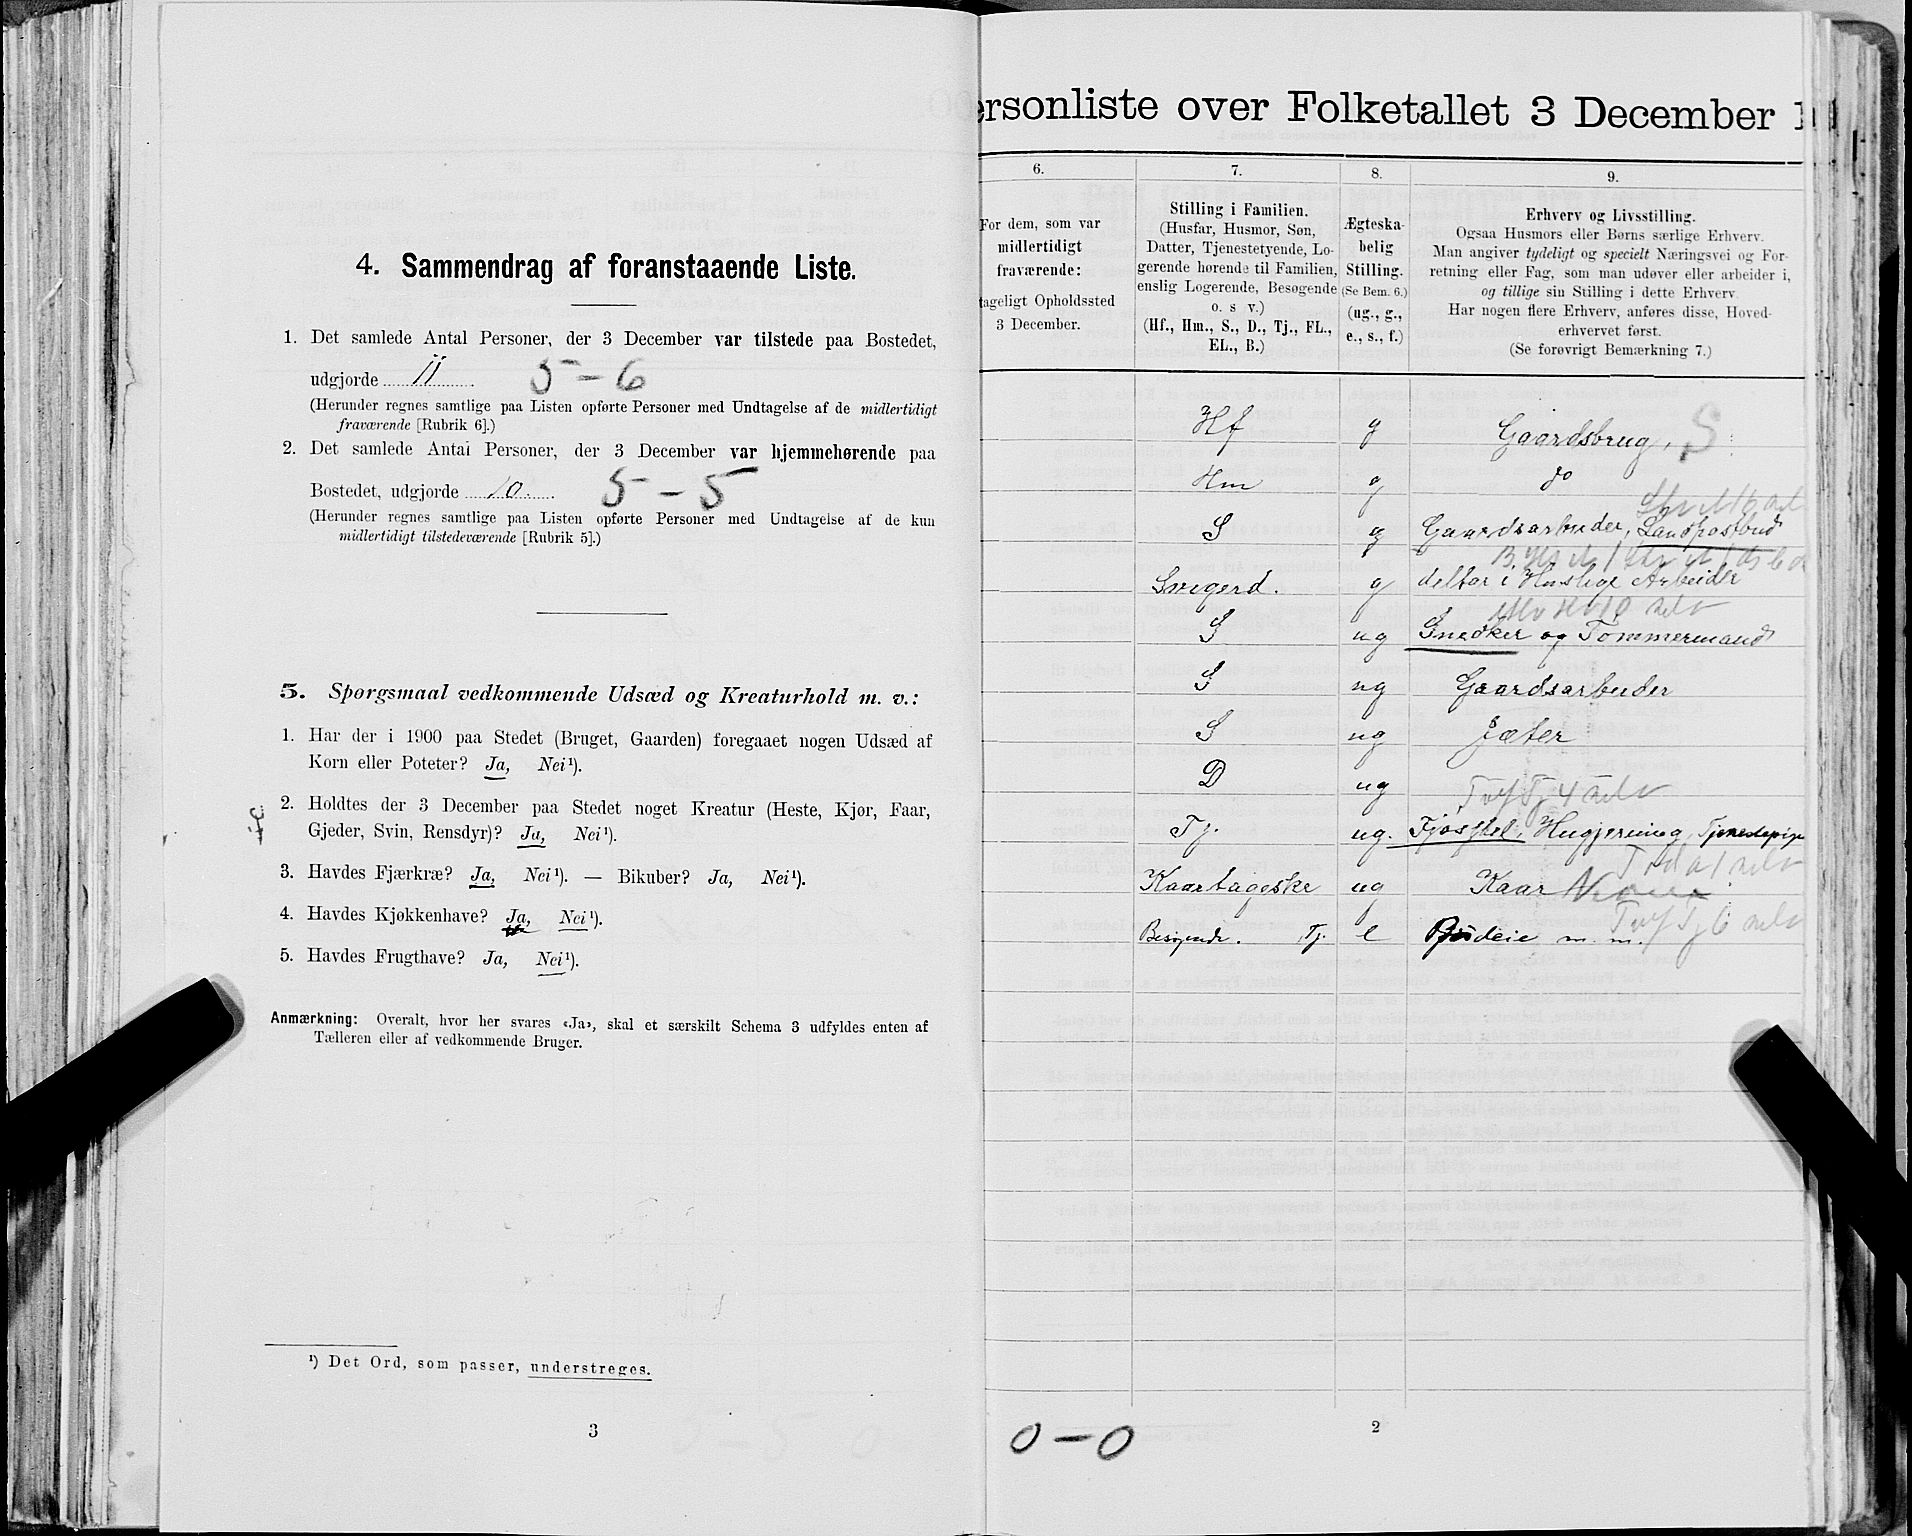 4. Sammendrag af foranstaaende Liste.
1. Det samlede Antal Personer, der 3 December var tilstede paa Bostedet,
udgjorde 11 5 - 6
(Herunder regnes samtlige paa Listen opførte Personer med Undtagelse af de midlertidigt
fraværende [Rubrik 6].)
2. Det samlede Antal Personer, der 3 December var hjemmehørende paa
Bostedet, udgjorde 10 5 - 5
(Herunder regnes samtlige paa Listen opførte Personer med Undtagelse af de kun
midlertidigt tilstedeværende [Rubrik 5].)
5. Spørgsmaal vedkommende Udsæd og Kreaturhold m. v.:
1. Har der i 1900 paa Stedet (Bruget, Gaarden) foregaaet nogen Udsæd af
Korn eller Poteter? Ja, Nei¹).
2. Holdtes der 3 December paa Stedet noget Kreatur (Heste, Kjør, Faar,
Gjeder, Svin, Rensdyr)? Ja, Nei¹).
3. Havdes Fjærkræ? Ja, Nei¹). — Bikuber? Ja, Nei¹).
4. Havdes Kjøkkenhave? Ja, Nei¹).
5. Havdes Frugthave? Ja, Nei¹).
Anmærkning: Overalt, hvor her svares «Ja», skal et særskilt Schema 3 udfyldes enten af
Tælleren eller af vedkommende Bruger.
¹) Det Ord, som passer, understreges.
3
ersonliste over Folketallet 3 December 1
6. 7. 8. 9.
For dem, som var
midlertidigt
fraværende:
tageligt Opholdssted
3 December.
Stilling i Familien.
(Husfar, Husmor, Søn,
Datter, Tjenestetyende, Lo-
gerende hørende til Familien,
enslig Logerende, Besøgende
o. s v.)
(Hf., Hm., S., D., Tj., FL.,
EL., B.)
Ægteska-
belig
Stilling.
(Se Bem. 6.)
(ug., g.,
e., s., f.)
Erhverv og Livsstilling.
Ogsaa Husmors eller Børns særlige Erhverv.
Man angiver tydeligt og specielt Næringsvei og For-
retning eller Fag, som man udøver eller arbeider i,
og tillige sin Stilling i dette Erhverv.
Har nogen flere Erhverv, anføres disse, Hoved-
erhvervet først.
(Se forøvrigt Bemærkning 7.)
Hf g Gaardsbrug, S
Hm g do
S g Gaardsarbeider, Landpostbud
Svigerd. g deltar i Huslige Arbeider
S ug Snedker og Tømmermand
S ug Gaardsarbeider
S ug Gjæter
D ug
Tj. ug. Fjøsstel, Husgjerning, Tjenestepige
Kaartageske ug Kaar
Besøgende. Tj. e Budeie m. m.
0 - 0
2